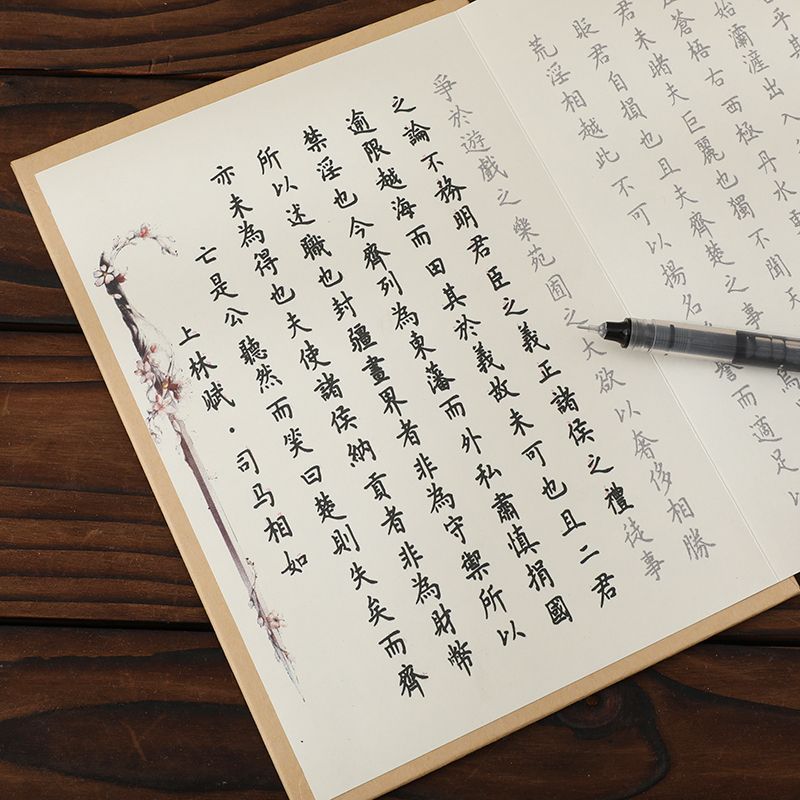 上林赋·司马相如
亡是公聽然而笑曰楚則失矣而齊
亦未為得也夫使諸侯納貢者非為財幣
所以述職也封疆畫界者非為守禦所以
禁淫也今齊列為東藩而外私肅慎捐國
逾限越海而田其於義故未可也且二君
之論不務明君臣之義正諸侯之禮徒事
爭於遊戲之樂苑囿之大欲以奢侈相勝
荒淫相越此不可以揚名譽而適足以
貶君自損也且夫齊楚之事
君未睹夫巨麗也獨不聞天
蒼梧右西極丹水更
始灞滻出入
乎其